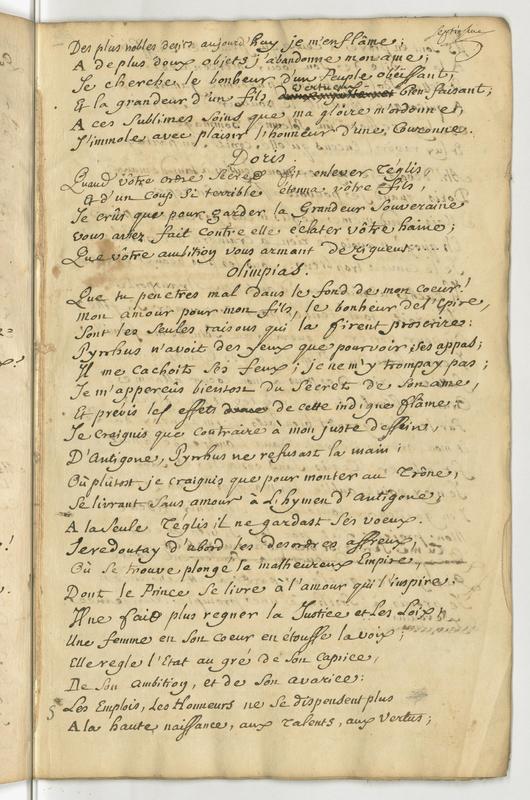 Des plus nobles desirs aujourd'huy je m'enflâme;
A de plus doux objets j'abandonne mon ame;
Je cherche le bonheur d'un Peuple obeissant,
vertueux
Et la grandeur d'un fils bien-faisant;
A ces sublimes soins que ma gloire m'ordonne,
J'immole avec plaisir l'honneur d'une Couronne.
Doris.
Quand vôtre ordre secret fit enlever Téglis
Et d'un coup si terrible étonna vôtre fils,
Je crûs que pour garder la Grandeur Souveraine
vous aviez fait contre elle éclater vôtre haine;
Que vôtre ambition vous armant de rigueur
Olimpias.
Que tu penetres mal dans le fond de mon coeur!
mon amour pour mon fils, le bonheur de l'Epire,
sont les seules raisons qui la firent proscrire:
Pyrrhus n'avoit des yeux que pour voir ses appas;
Il me cachoit ses feux; je ne m'y trompay pas;
Je m'apperçûs bientost du Secret de son ame,
Et prévis les effets de cette indigne flâme.
Je craignis que contraire à mon juste dessein,
D'Antigone, Pyrrhus ne refusast la main;
Où plûtost je craignis que pour monter au Trône,
se livrant sans amour à L'hymen d'Antigone;
A la seule Téglis il ne gardast ses voeux.
Je redoutay d'abord les desordres affreux,
Où se trouve plongé le malheureux Empire,
Dont le Prince se livre à l'amour qui l'inspire.
Il ne fait plus regner la Justice et les Loix;
Une femme en son coeur en étouffe la voix;
Elle regle l'Etat au gré de son caprice,
De son ambition, et de son avarice:
§ Les Emplois, Les Honneurs ne se dispensent plus
A la haute naissance, aux talents, aux vertus;